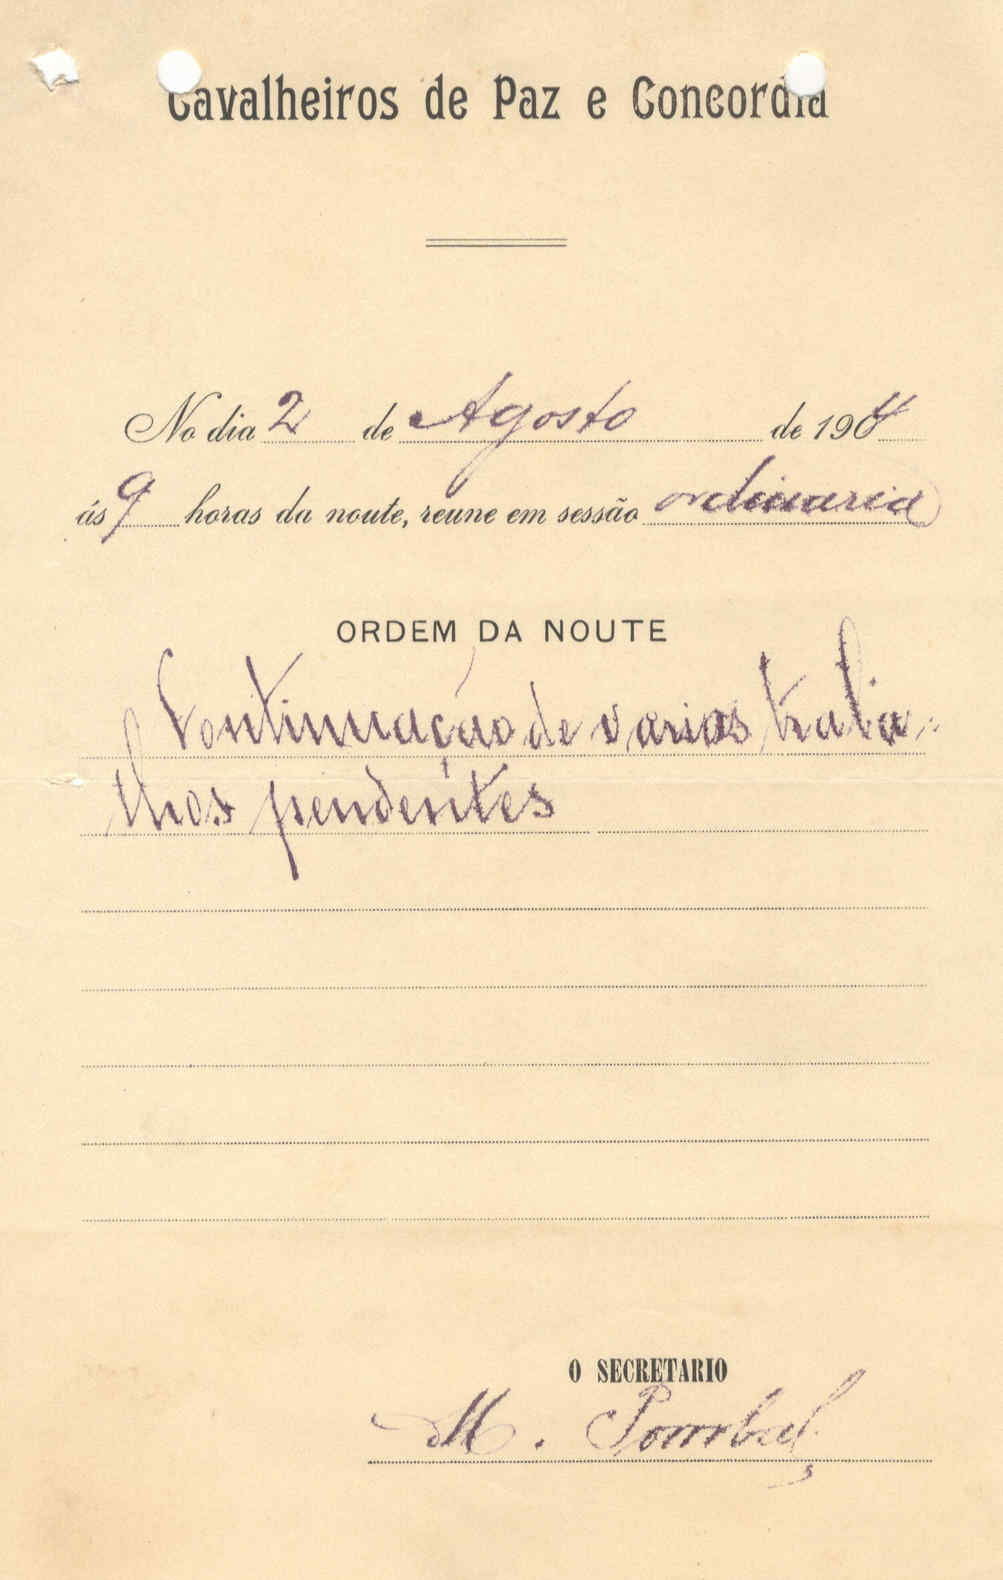 Cavalheiros de Paz e Concordia
No dia 2 de Agosto de 1904
ás 9 horas da noute, reune em sessão ordinaria
ORDEM DA NOUTE
Continuação de varios traba-
lhos pendentes
O SECRETARIO
M. Pombal